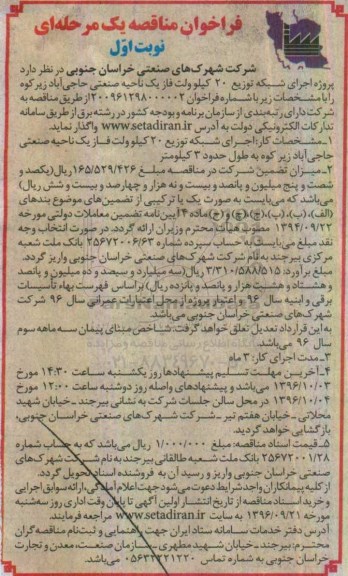 فراخوان مناقصه یک مرحله‌ای
نوبت اوّل
شرکت شهرک‌های صنعتی خراسان جنوبی در نظر دارد
پروژه اجرای شبکه توزیع ۲۰ کیلو ولت فاز یک ناحیه صنعتی حاجی‌آباد زیرکوه
را با مشخصات زیر با شماره فراخوان ۲۰۰۹۶۱۲۹۸۰۰۰۰۰۲ از طریق مناقصه به
شرکت دارای رتبه‌بندی از سازمان برنامه و بودجه کشور در رشته برق از طریق سامانه
تدارکات الکترونیکی دولت به آدرس www.setadiran.ir واگذار نماید.
۱ـ مشخصات کار: اجرای شبکه توزیع ۲۰ کیلو ولت فاز یک ناحیه صنعتی
حاجی آباد زیر کوه به طول حدود ۳ کیلومتر
۲ـ میزان تضمین شرکت در مناقصه مبلغ ۱۶۵/۵۲۹/۴۲۶ ریال (یکصد و
شصت و پنج میلیون و پانصد و بیست و نه هزار و چهارصد و بیست و شش ریال)
می‌باشد که می‌بایست به صورت یک یا ترکیبی از تضمین‌های موضوع بندهای
(الف)، (ب)، (پ)، (ج)، (چ) و (خ) ماده ۴ آیین نامه تضمین معاملات دولتی مورخه
۱۳۹۴/۰۹/۲۲ مصوب هیأت محترم وزیران ارائه گردد. در صورت انتخاب وجه
نقد مبلغ می‌بایست به حساب سپرده شماره ۲۵۶۷۲۰۰۶/۶۳ بانک ملت شعبه
مرکزی بیرجند به نام شرکت شهرک‌های صنعتی خراسان جنوبی واریز گردد.
مبلغ برآورد: ۳/۳۱۰/۵۸۸/۵۱۵ ریال (سه میلیارد و سیصد و ده میلیون و پانصد
و هشتاد و هشت هزار و پانصد و پانزده ریال) براساس فهرست بهاء تأسیسات
برقی و ابنیه سال ۹۶ و اعتبار پروژه از محل اعتبارات عمرانی سال ۹۶ شرکت
شهرک‌های صنعتی خراسان جنوبی می‌باشد.
به این قرارداد تعدیل تعلق خواهد گرفت. شاخص مبنای پیمان سه ماهه سوم
سال ۹۶ می‌باشد.
۳ـ مدت اجرای کار: ۳ ماه
۴ـ آخرین مهلت تسلیم پیشنهادها روز یکشنبه ساعت ۱۴:۳۰ مورخ
۱۳۹۶/۱۰/۰۳ می‌باشد و پیشنهادهای واصله روز دوشنبه ساعت ۱۲:۰۰ مورخ
۱۳۹۶/۱۰/۰۴ در محل سالن جلسات شرکت به نشانی بیرجند ـ خیابان شهید
محلاتی ـ خیابان هفتم تیر ـ شرکت شهرک‌های صنعتی خراسان جنوبی،
بازگشایی خواهد گردید.
۵ـ قیمت اسناد مناقصه: مبلغ ۱/۰۰۰/۰۰۰ ریال می‌باشد که به حساب شماره
۲۵۶۷۲۰۰۱/۲۸ بانک ملت شعبه طالقانی بیرجند به نام شرکت شهرک‌های
صنعتی خراسان جنوبی واریز و رسید آن به فروشنده اسناد تحویل گردد.
از کلیه پیمانکاران واجد شرایط دعوت می‌شود جهت اعلام آمادگی، ارائه سوابق اجرایی
و خرید اسناد مناقصه از تاریخ انتشار اولین آگهی تا پایان وقت اداری روز سه‌شنبه
مورخ ۱۳۹۶/۰۹/۲۱ به سایت www.setadiran.ir مراجعه فرمایند.
آدرس دفتر خدمات سامانه ستاد ایران جهت راهنمایی و ثبت‌نام مناقصه‌گران
محترم: بیرجند ـ خیابان شهید مطهری ـ سازمان صنعت، معدن و تجارت
خراسان جنوبی به شماره تماس ۰۵۶۳۲۲۲۱۲۲۰ می‌باشد.